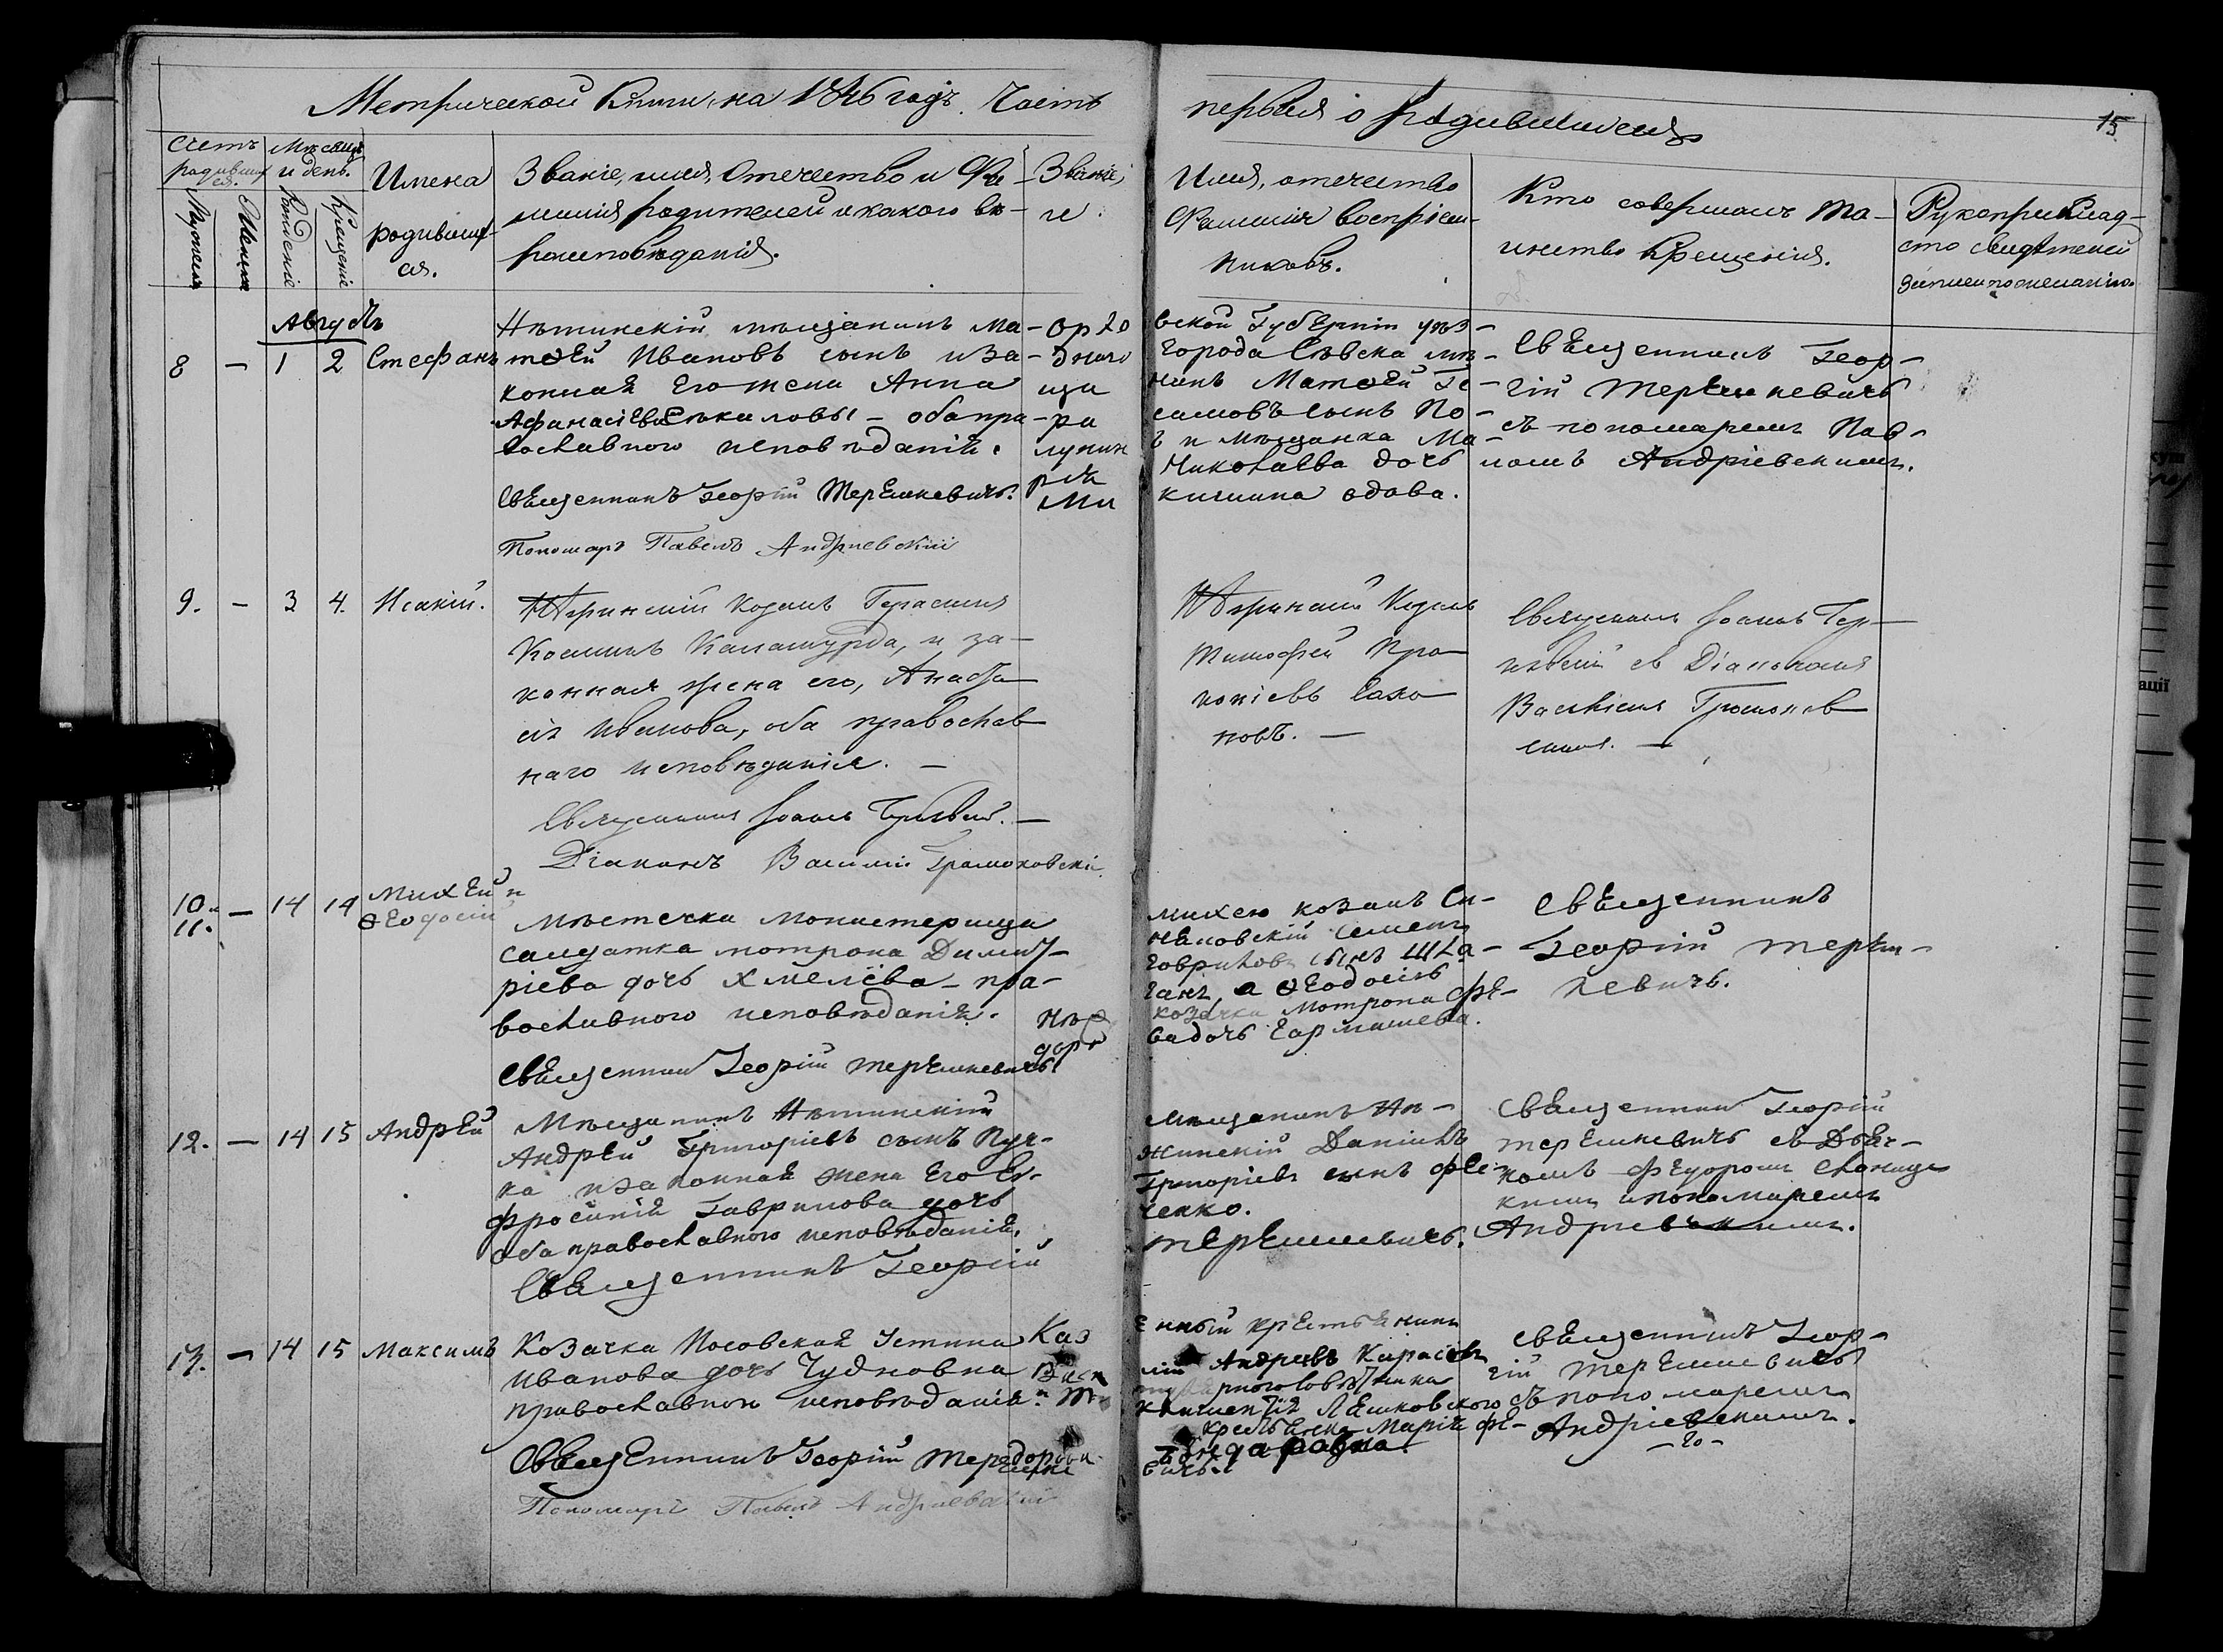 Метрической Книги, на 1846 годъ. Часть
первая о родившихся
15
Счетъ родившихся.
Мужеска
Женска
Мѣсяцъ и день.
Рожденіе
Крещеніе
Имена
родивших-
ся.
Званіе, имя, Отечество и Фа-
милія родителей и какого вѣ-
роисповѣданія.
Званіе,
Имя, отечество
и Фамилія воспріем-
никовъ.
Кто совершалъ та-
инство Крещенія.
Рукоприклад-
ство свидѣтелей
записи по желанію.
Августъ
8 — 1 2 Стефанъ
Нѣжинскій мѣщанинъ Ма-
тѳей Ивановъ сынъ и за-
конная Его жена Анна
Афанасіева — оба пра-
вославного исповѣданія.
Священникъ Георгій Терешкевичъ.
Пономарь Павелъ Андриевскій
Орло
вской Губерніи уѣз-
дного города Сѣвска мѣ-
ща нинъ Матѳей Ге-
ра симовъ сынъ По-
и мѣщанка Ма-
Николаева дочь
вдова.
Священникъ Геор-
гій Терешкевичъ
съ пономаремъ Пав-
ломъ Андріевскимъ.
9. — 3 4. Исакій.
Козакъ Герасимъ
Косминъ Каламурда, и за-
конная жена его, Анаста-
сія Иванова, оба православ-
наго исповѣданія. —
Священникъ Іоаннъ —
Діаконъ Василій Громоковскій
Козакъ
Тимофей Про-
копіевъ Сахо-
новъ. —
Священникъ Іоаннъ
съ Діакономъ
Василіемъ Громоков-
скимъ. —
10. 11. — 14 14 Михей и
Ѳеодосій
Мѣстечка Монастерища
салдатка Мотрона Димит-
ріева дочь Хмелёва — пра-
вославного исповѣданія.
Священникъ Георгій Терешкевичъ
Михею козакъ Си-
няковскій Семенъ
Говриловъ сынъ
а Ѳеодосію
козачка Мотрона Фе-
дорова дочь Гармашева.
Священникъ
Георгій Тереш-
кевичъ.
12. — 14 15 Андрей
Мѣщанинъ Нѣжинскій
Андрей Григоріевъ сынъ Пуч-
ка и законная жена Его Ев-
фросинія Гаврилова дочь
оба православного исповѣданія.
Священникъ Георгій
Терешкевичъ.
Мѣщанинъ Нѣ-
жинскій Даніилъ
Григоріевъ сынъ Фес-
ченко.
Священникъ Георгій
Терешкевичъ съ Дьяч-
комъ Федоромъ Слониц-
кимъ и пономаремъ
Андріевскимъ.
13. — 14 15 Максимъ
Козачка Носовская Устина
Иванова дочь Чудновна
православного исповѣданія.
Священникъ Георгій Терешкевичъ
Пономарь Павелъ Андриевскій
Каз енный крестьянинъ
Васи лій Андреевъ
Совѣтника
Лешковского
крестьянка Марія Фе-
дорова
Священникъ Геор-
гій Терешкевичъ
съ пономаремъ
Андріевскимъ.